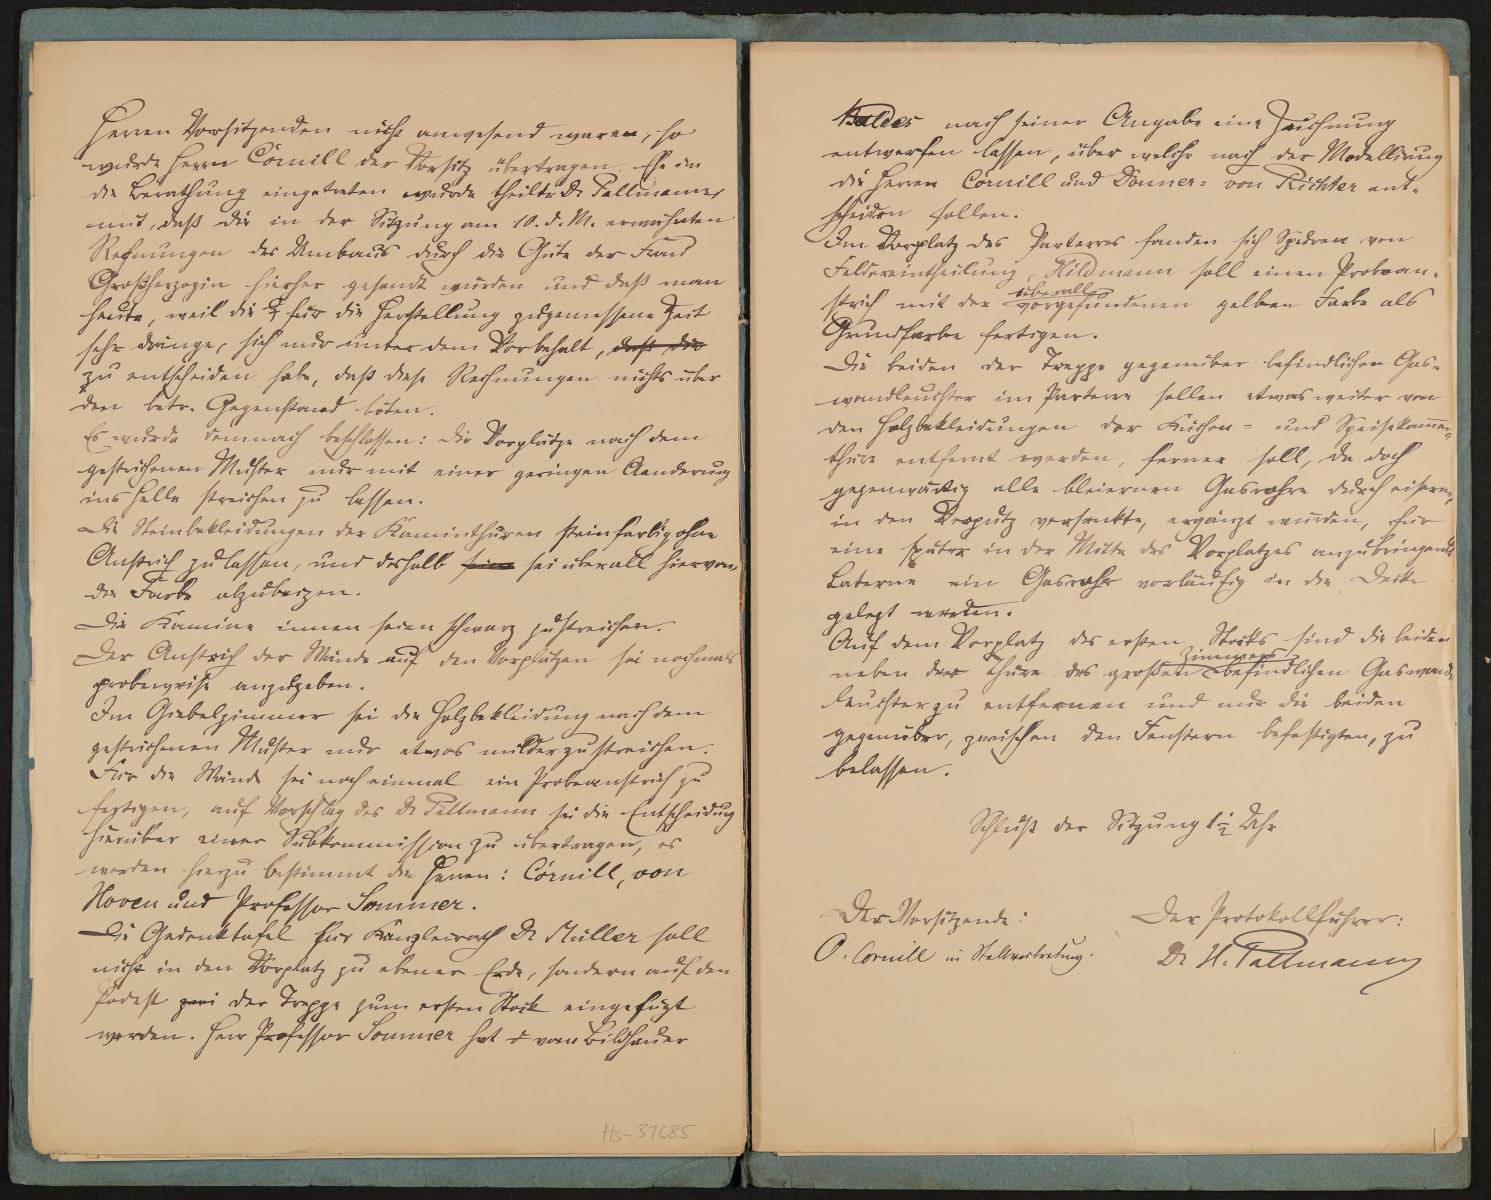 Herren Vorsitzenden nicht anwesend waren, so
wurde Herrn Cornill der Vorsitz übertragen. Ehe in
die Berathung eingetreten wurde theilte Dr Pallmann
mit, daß die in der Sitzung am 10. d. M. erwähnten
Rechnungen des Umbaus durch die Güte der Frau
Großherzogin hierher gesandt würden und daß man
heute, weil die für die Herstellung zugemessene Zeit
sehr dränge, sich nur unter dem Vorbehalt, daß die
zu entscheiden habe, daß diese Rechnungen nichts über
den betr. Gegenstand böten.
Es wurde demnach beschlossen: Die Vorplätze nach dem
gestrichenen Muster nur mit einer geringen Aenderung
ins Helle streichen zu lassen.
Die Steinbekleidungen der Kaminthüren steinfarbig ohne
Anstrich zu lassen, und deshalb sei überall hiervon
die Farbe abzubeizen.
Die Kamine innen seien schwarz zu streichen.
Der Anstrich der Wände auf den Vorplätzen sei nochmals
probeweise anzugeben.
Im Giebelzimmer sei die Holzbekleidung nach dem
gestrichenen Muster nur etwas milder zu streichen.
Für die Wände sei noch einmal ein Probeanstrich zu
fertigen, auf Vorschlag des Dr Pallmann sei die Entscheidung
hierüber einer Subkommission zu übertragen, es
werden hierzu bestimmt die Herren: Cornill, von
Hoven und Professor Sommer.
Die Gedenktafel für Kanzleirath Dr Müller soll
nicht in den Vorplatz zu ebener Erde, sondern auf den
Podest der Treppe zum ersten Stock eingefügt
werden. Herr Professor Sommer hat vom Bildhauer
Hs-31685
Baldes nach seiner Angabe eine Zeichnung
entwerfen lassen, über welche nach der Modellirung
die Herren Cornill und Donner= von Richter ent-
scheiden sollen.
Im Vorplatz des Parterres fanden sich Spuren von
Feldereintheilung, Hildmann soll einen Probean-
strich mit der überall vorgefundenen gelben Farbe als
Grundfarbe fertigen.
Die beiden der Treppe gegenüber befindlichen Gas-
wandleuchter im Parterre sollen etwas weiter von
den Holzbekleidungen der Küchen- und Speisekammer-
thüre entfernt werden, ferner soll, da doch
gegenwärtig alle bleiernen Gasrohre durch eiserne,
in den Verputz versenkte, ergänzt würden, für
eine später in der Mitte des Vorplatzes anzubringende
Laterne ein Gasrohr vorläufig in die Decke
gelegt werden.
Auf dem Vorplatz des ersten Stocks sind die beiden
neben der Thüre des großen Zimmers befindlichen Gaswand-
leuchter zu entfernen und nur die beiden
gegenüber, zwischen den Fenstern befestigten, zu
belassen.
Schluß der Sitzung 1½ Uhr
Der Vorsitzende:
O. Cornill in Stellvertretung.
Der Protokollführer:
Dr H. Pallmann